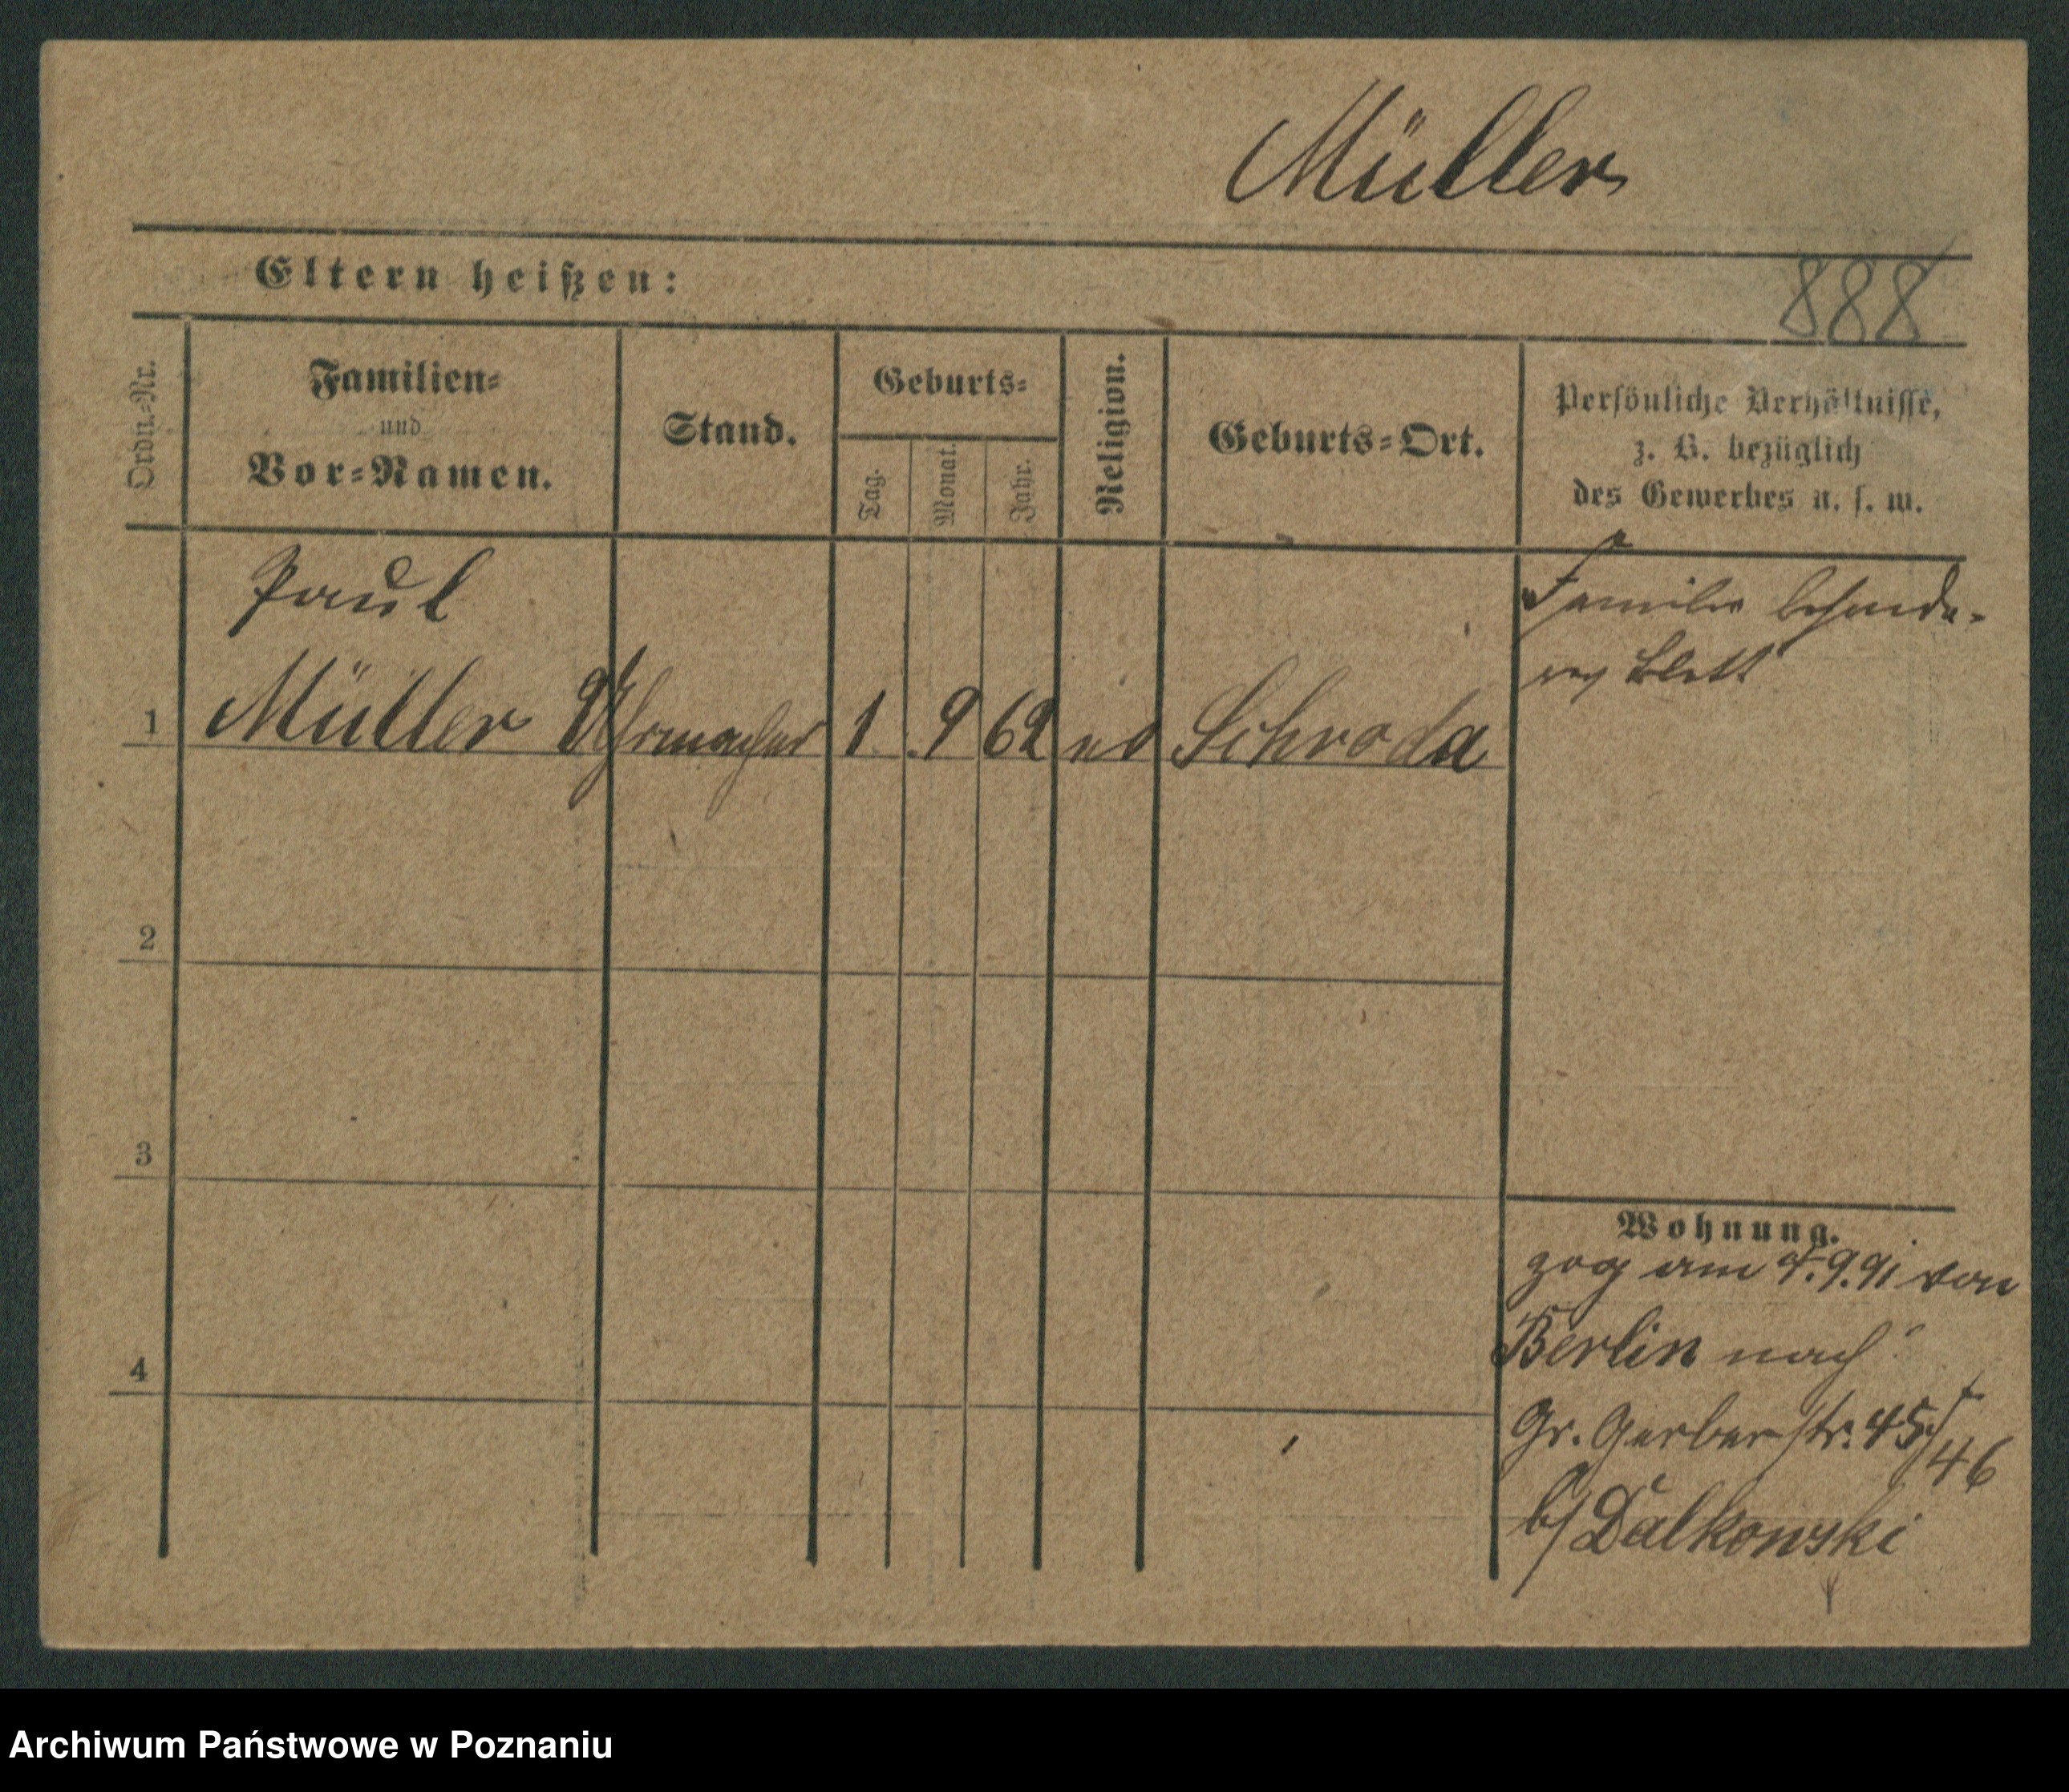 Müller
Eltern heißen:
888
Ordn.-Nr.
Familien-
und
Vor-Namen.
Stand.
Geburts-
Tag.
Monat.
Jahr.
Religion.
Geburts-Ort.
Persönliche Verhältnisse,
z. B. bezüglich
des Gewerbes u. s. w.
Paul
1 Müller Uhrmacher 1. 9 62 Schroda
Familie besonde-
res Blatt
2
3
4
Wohnung.
zog am 9.91 von
Berlin nach
Gr. Gerberstr. 45/46
b/ Dalkowski
Archiwum Państwowe w Poznaniu